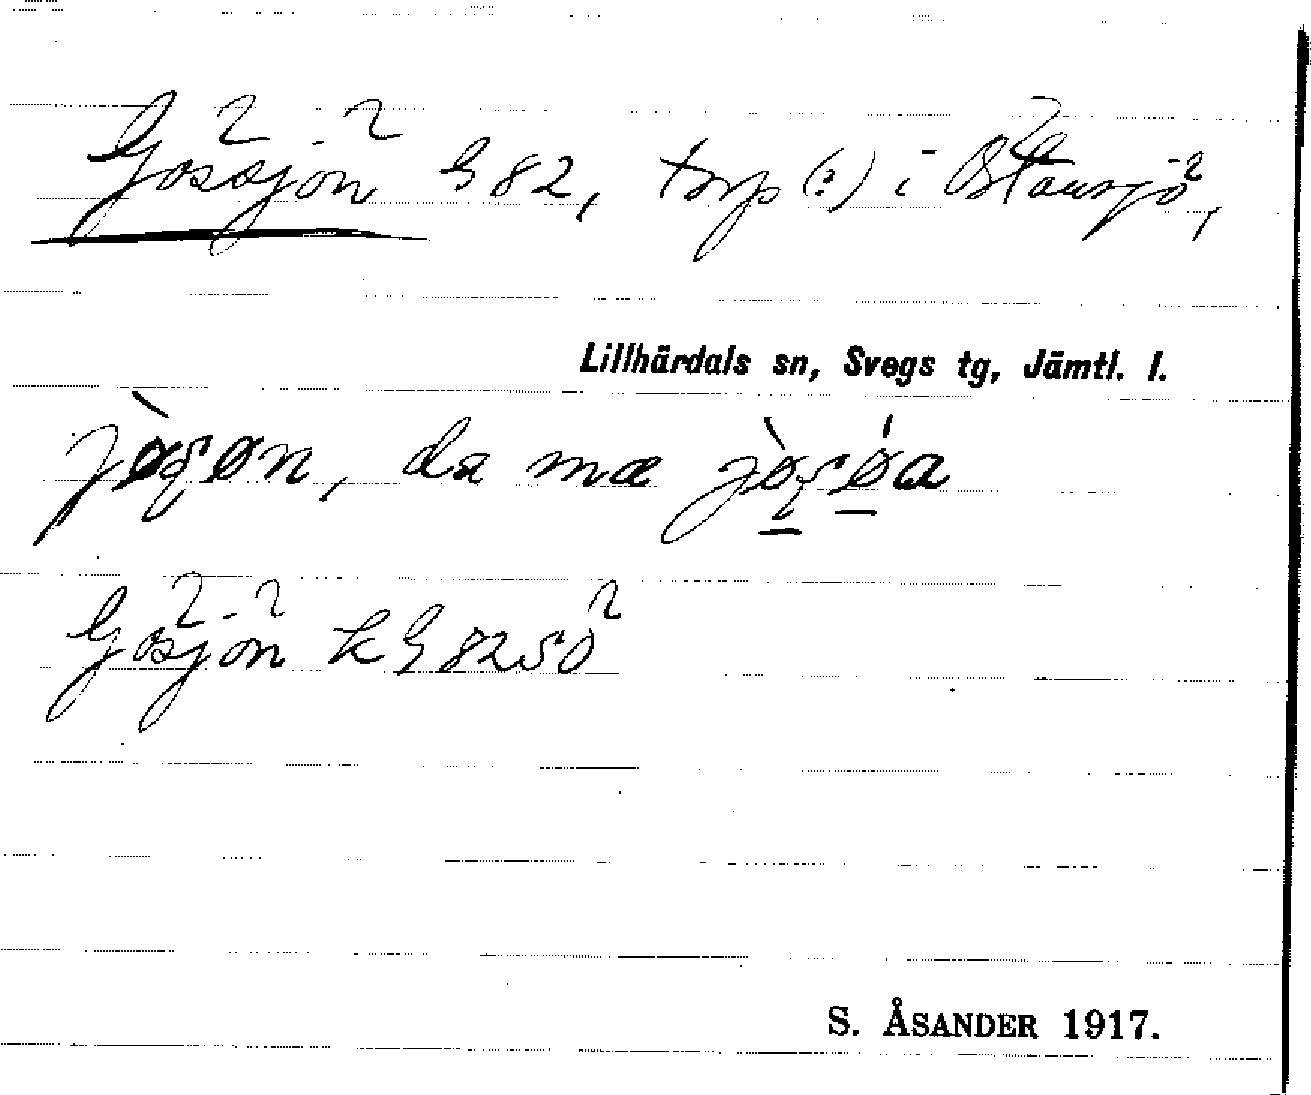 Gössjön G 82, torp (?) i Östansjö,
Lillhärdals sn, Svegs tg, Jämtl. l.
jøsøn, da mæ jøsøa
Gösjön k G 82 S0
S. ÅSANDER 1917.